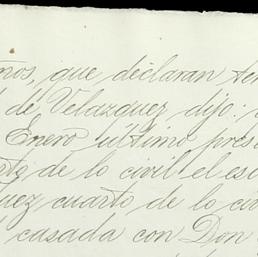 que declaran
de Velazquez dijo:
Enero último
de lo civil el
cuarto de lo
casada con Don